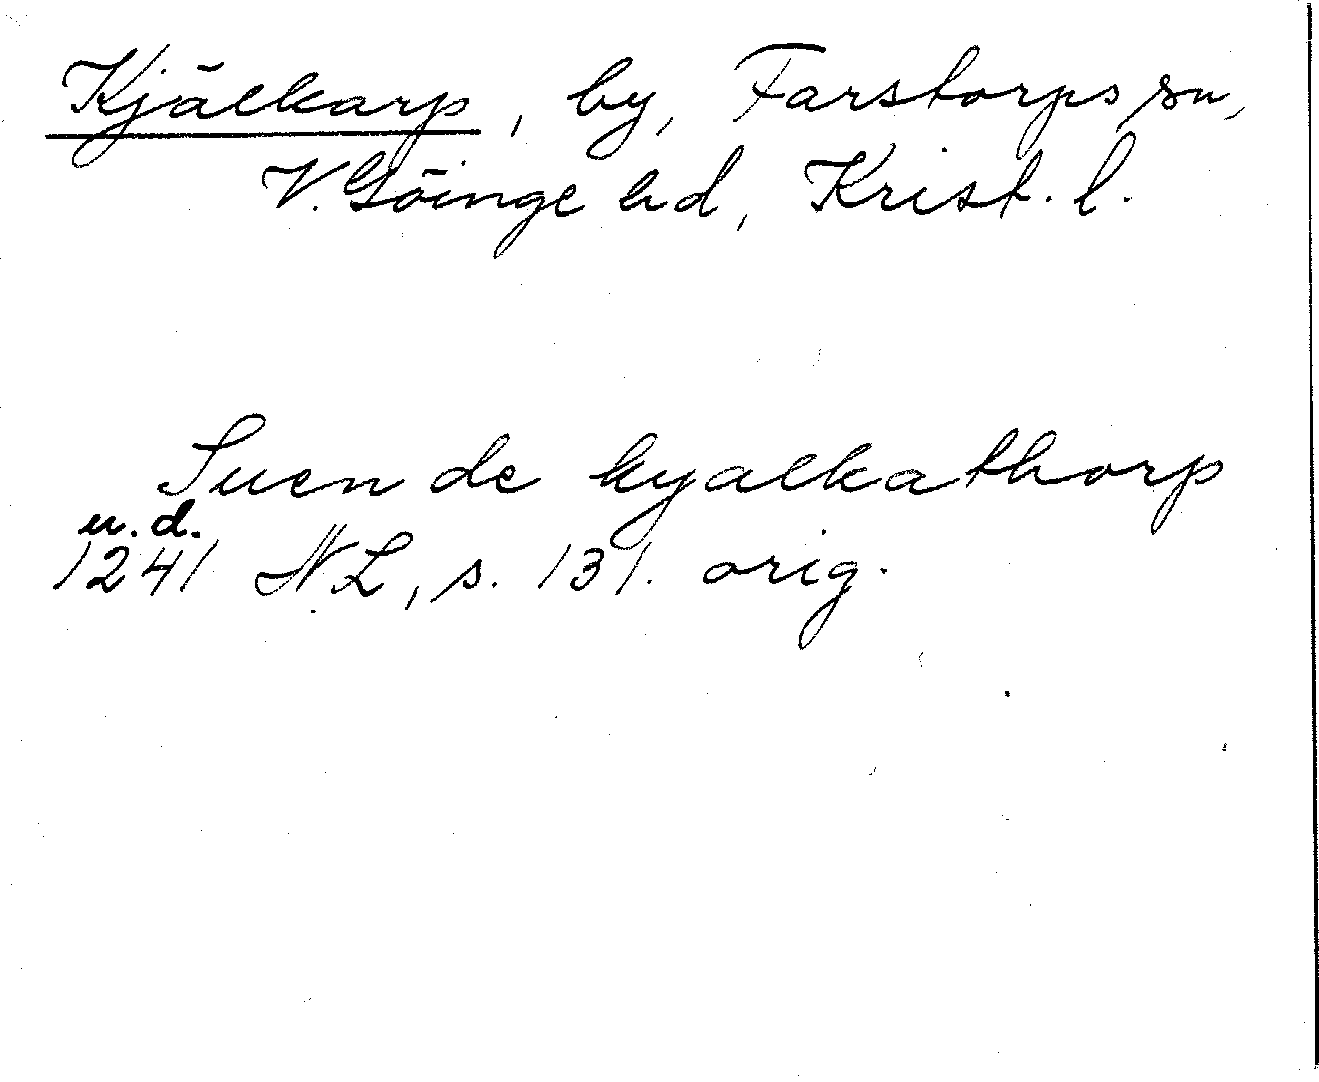 Kjälkarp, by, Farstorps sn,
V. Göinge hd, Krist. l.
Suen de kyalkathorp
u. d.
1241 NL, s. 131. orig.